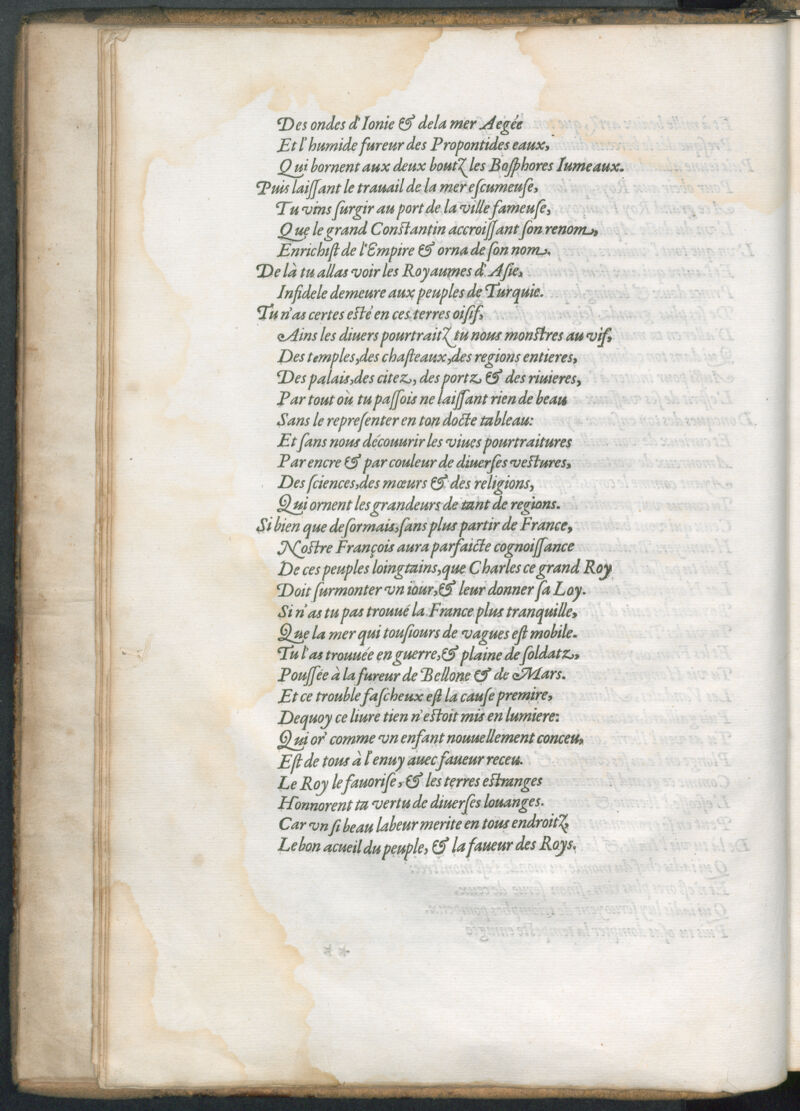 Des ondes d'Ionie & dela mer Aegée
Et l'humide fureur des Propontides eaux,
Qui bornent aux deux boutz les Boſphores Iumeaux.
Puis laiſſant le trauail de la mer eſcumeuſe,
Tu vins ſurgir au port de la ville fameuſe,
Que le grand Conſtantin accroiſſant ſon renom,
Enrichiſt de l'Empire & orna de ſon nom.
De là tu allas voir les Royaumes d'Aſie,
Infidele demeure aux peuples de Turquie.
Tu n'as certes eſté en ces terres oiſif,
Ains les diuers pourtraitz tu nous monſtres au vif,
Des temples,des chaſteaux,des regions entieres,
Des palais,des citez, des portz & des riuieres,
Par tout où tu paſſois ne laiſſant rien de beau
Sans le repreſenter en ton docte tableau:
Et ſans nous découurir les viues pourtraitures
Par encre & par couleur de diuerſes veſtures,
Des ſciences,des mœurs & des religions,
Qui ornent les grandeurs de tant de regions.
Si bien que deſormais,ſans plus partir de France,
Noſtre François aura parfaicte cognoiſſance
De ces peuples loingtains,que Charles ce grand Roy
Doit ſurmonter vn iour,& leur donner ſa Loy.
Si n'as tu pas trouué la France plus tranquille,
Que la mer qui touſiours de vagues eſt mobile.
Tu l'as trouuée en guerre,& plaine de ſoldatz,
Pouſſée à la fureur de Bellone & de Mars.
Et ce trouble faſcheux eſt la cauſe premire,
Dequoy ce liure tien n'eſtoit mis en lumiere:
Qui or' comme vn enfant nouuellement conceu,
Eſt de tous à l'enuy auec faueur receu.
Le Roy le fauoriſe, & les terres eſtranges
Honnorent ta vertu de diuerſes louanges.
Car vn ſi beau labeur merite en tous endroitz,
Le bon acueil du peuple, & la faueur des Roys.